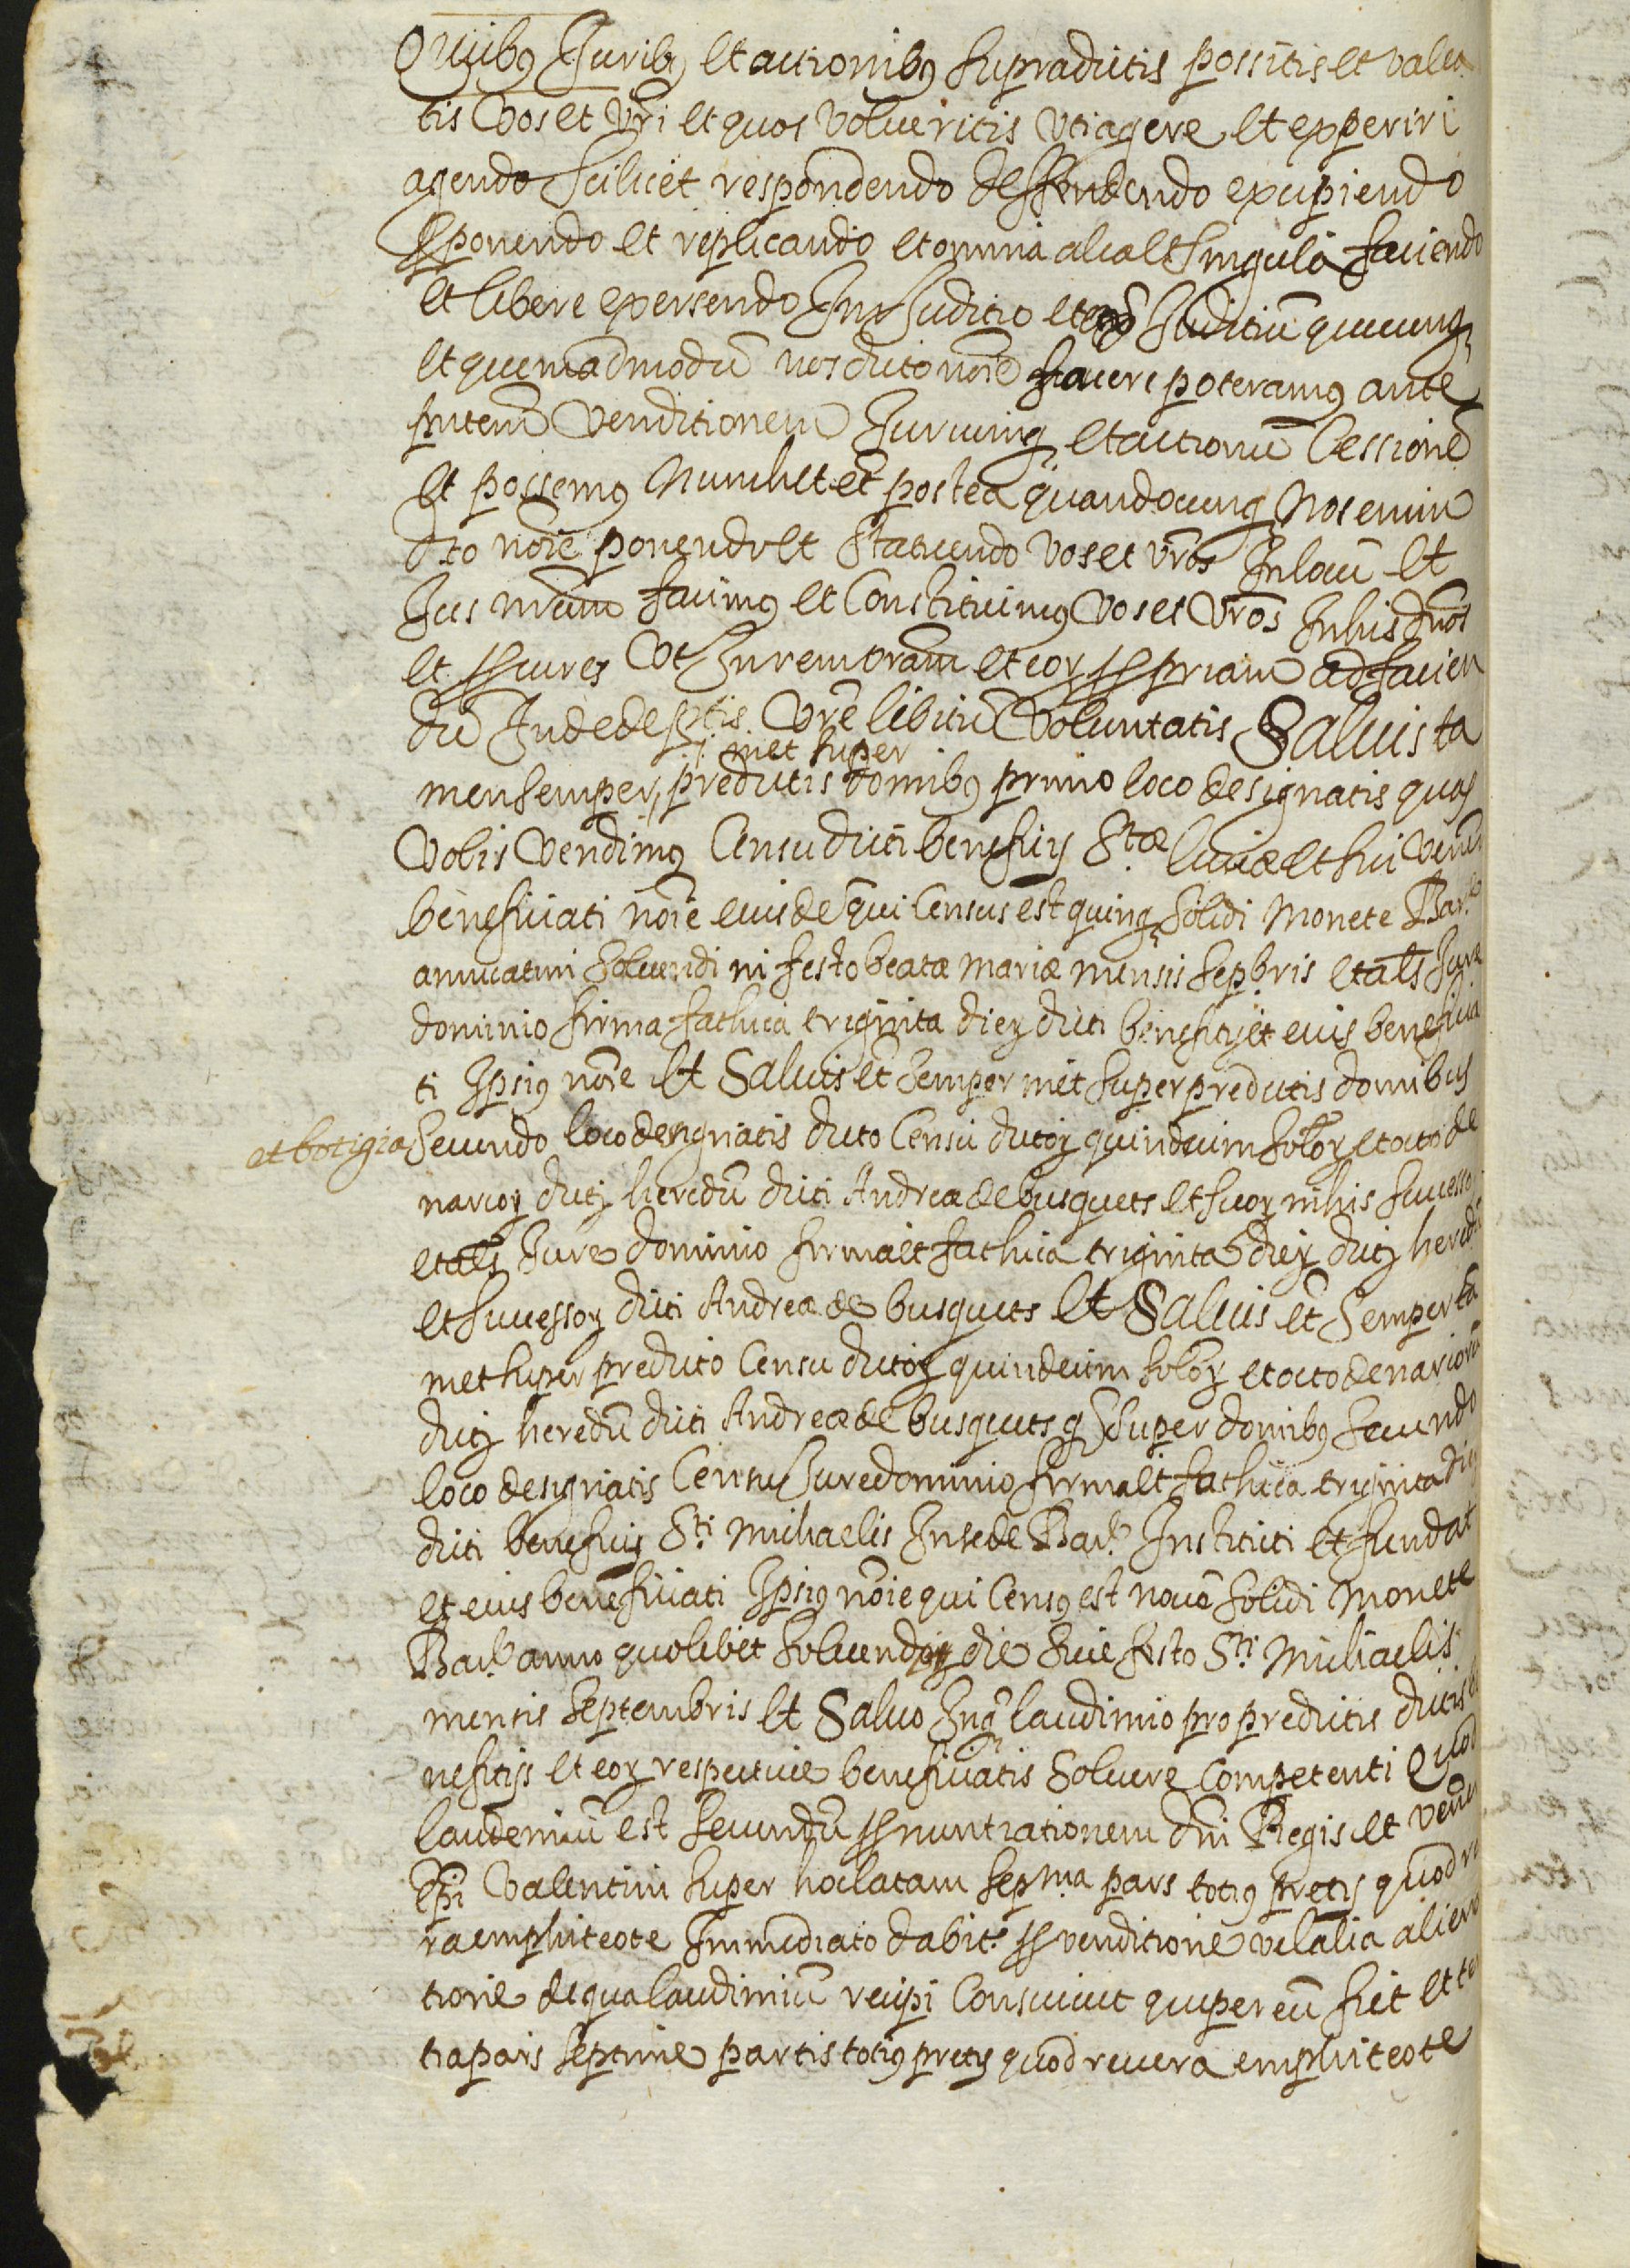 Quibus Jurib9 et actionib9 supradictis possitis et valea
tis Vos et vri et quos volueritis uti agere et experiri
agendo scilicet respondendo deffendendo excipiendo
ponendo et replicando et omnia alia et singula faciendo
et libere exersendo In Juditio et Juditiū quecunq
et quemadmodū nos dicto noīe facere poteramus ante
pntem venditionem Juriumq et actionū Cessionē
et possemus Nunc et et postea quandocunq Nos enim
dto noīe ponendo et statuendo vos et vros In locū et
Jus nrum facimus et Constituimus vos et vros In his dnos
et pcures Ut In rem vram et eor ppriam ad facien
dū Inde de pdictis vre libitū voluntatis Salvis ta
met super
men semper, predictis domibus primo loco designatis quas
Vobis Vendimus Censu dicti beneficij Stæ Luciæ et sui Vener
beneficiati noīe eiusdē qui Census est quinq solidi Monete Barne
annuatim solvendi in festo beatæ mariæ mensis sepbris et als Jure
dominio firma fathica triginta dier dicti beneficij et eius beneficia
ti Ipsius noīe et Salvis et semper met super predictis domibus
et botigia
Secundo loco designatis dicto Censu dictor quindecim solor et octo de
narior dictj heredū dicti Andreæ de busquets et suor in his successor
et als Jure dominio firma et fathica triginta dier dictj heredū
et successor dicti Andreæ de busquets et Salvis et semper ta
met super predicto Censu dictor quindecim solor et octo denariorū
dictj heredū dicti Andreæ de busquets q super domibus secundo
loco designatis Censu Jure dominio firma et fathica triginta dier
dicti beneficij Sti Michaelis In sede Barne Instituti et fundat
et eius beneficiati Ipsius noīe qui Census est novē solidi Monete
Barne anno quolibet solvendor die sive festo Sti Michaelis
mensis septembris et Salvo Inq laudimio pro predictis dictis be
nefitijs et eor respective beneficiatis solvere Competenti Quod
laudemiū est secundū pnuntiationem dni Regis et vener
Epi Valentini super hoc latam sepma pars totius pretij quod re
ra emphiteote Immediato dabitr p venditione vel alia aliena
tione de qua laudimiū recipi Consuevit que per eū fiet et ter
tia pars septime partis totius pretij quod revera emphiteote